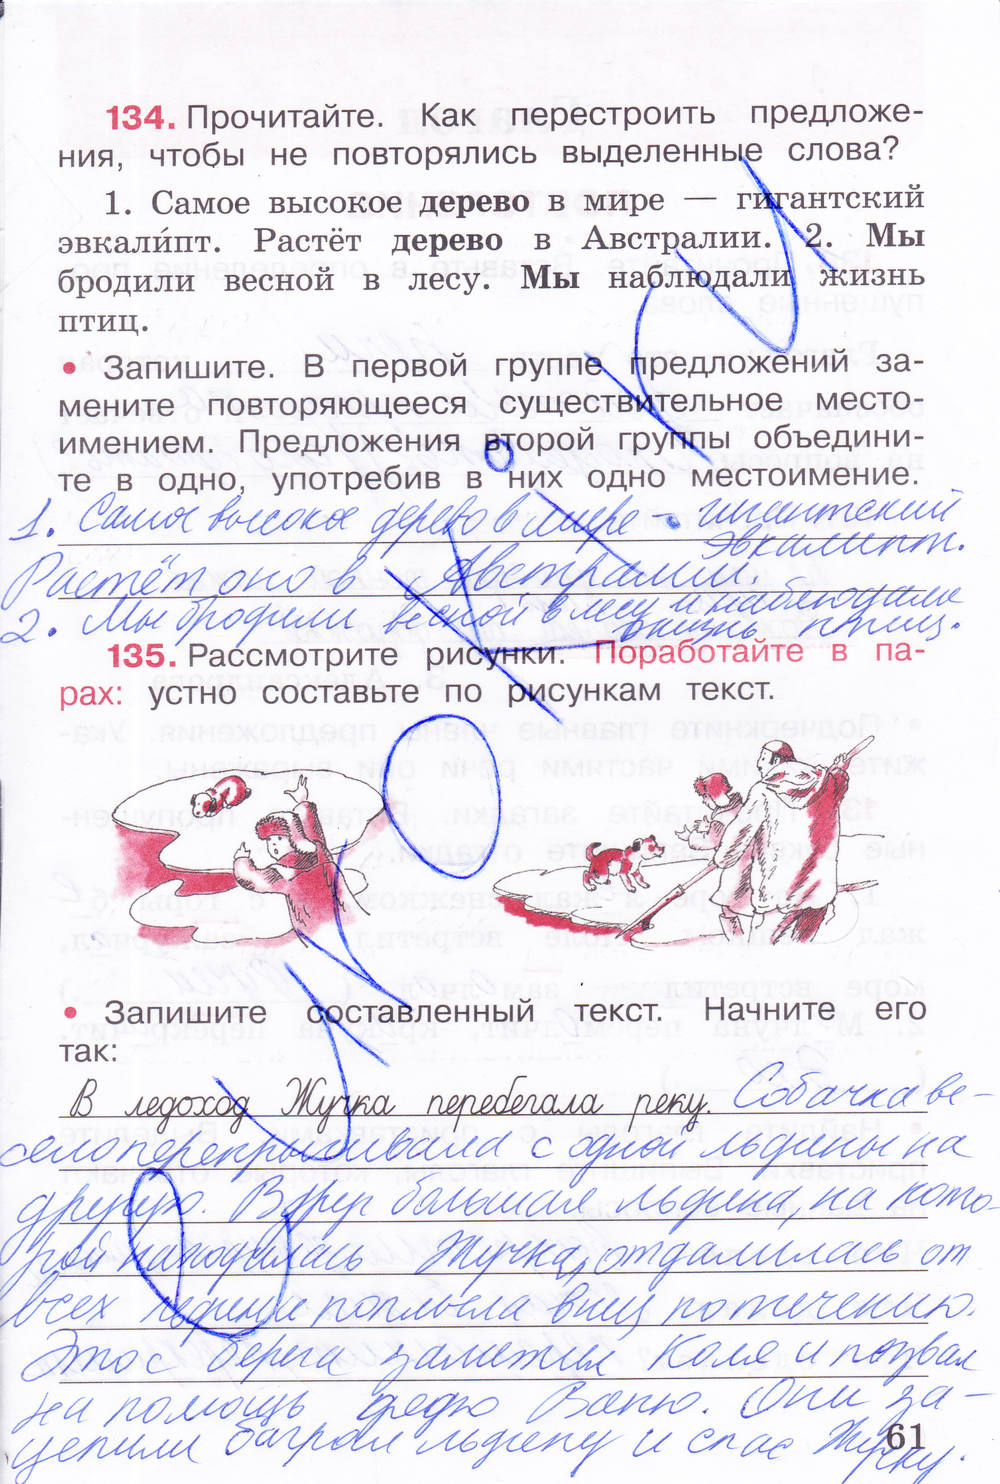 134. Прочитайте. Как перестроить предложе-
ния, чтобы не повторялись выделенные слова?
1. Самое высокое дерево в мире — гигантский
эвкали́пт. Растёт дерево в Австралии. 2. Мы
бродили весной в лесу. Мы наблюдали жизнь
птиц.
• Запишите. В первой группе предложений за-
мените повторяющееся существительное место-
имением. Предложения второй группы объедини-
те в одно, употребив в них одно местоимение.
1. Самое высокое дерево в мире - гигантский
эвкалипт.
Растёт оно в Австралии
2. Мы бродили весной в лесу и наблюдали
жизнь птиц.
135. Рассмотрите рисунки. Поработайте в па-
рах: устно составьте по рисункам текст.
• Запишите составленный текст. Начните его
так:
В ледоход Жучка перебегала реку. Собачка ве-
село перепрыгивала с одной льдины на
другую. Вдруг большая льдина, на кото-
рой находилась Жучка, отдалилась от
всех льдин и поплыла вниз по течению.
Это с берега заметил Коля и позвал
на помощь дядю Ваню. Они за-
цепили багром льдину и спас Жучку.
61